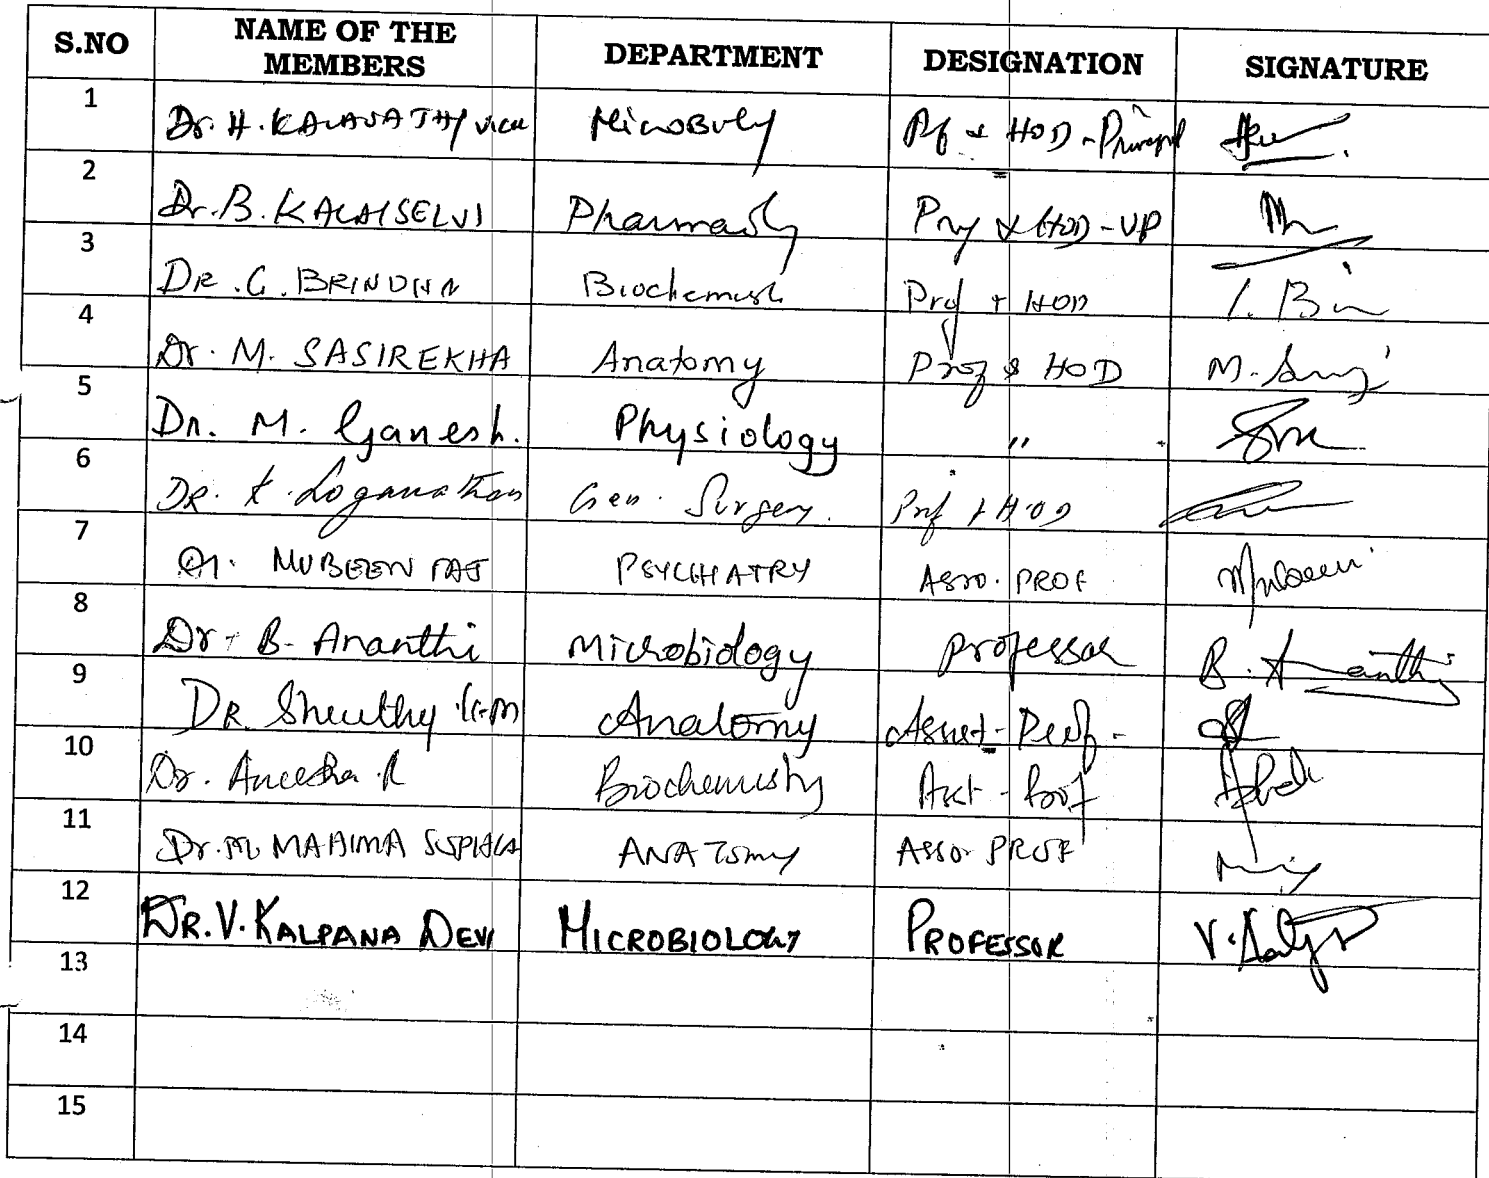 S.NO NAME OF THE MEMBERS DEPARTMENT DESIGNATION SIGNATURE
1 Dr. H. KALAVATHY
2 Dr. B. KALAISELVI Pharmacology & HOD - VP
3 DR. G. BRINDHA Biochemistry Prof + HOD
4 Dr. M. SASIREKHA Anatomy Prof & HOD
5 Dr. M. Ganesh. Physiology "
6 DR. K. Loganathan Gen. Surgery. Prof + HOD
7 Dr. MUBEEN TAJ PSYCHIATRY ASSO. PROF
8 Dr. B. Ananthi Microbiology Professor B. Ananthi
9 DR Anatomy Prof.
10 Dr. Aneesha R Biochemistry Asst - Prof
11 Dr. M MAHIMA ANATOMY ASSO PROF
12 DR. V. KALPANA DEVI MICROBIOLOGY PROFESSOR
13
14
15